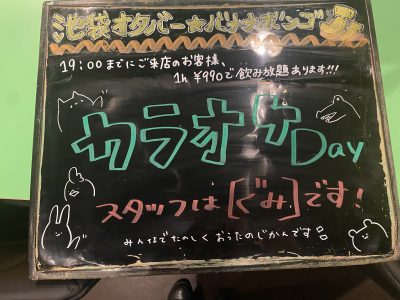 池袋オタバー☆バナナボンゴ
19:00までにご来店のお客様、
1h ¥990で飲み放題あります!!!
カラオケDay
スタッフは[ぐみ]です!
みんなでたのしく おうたのじかんです